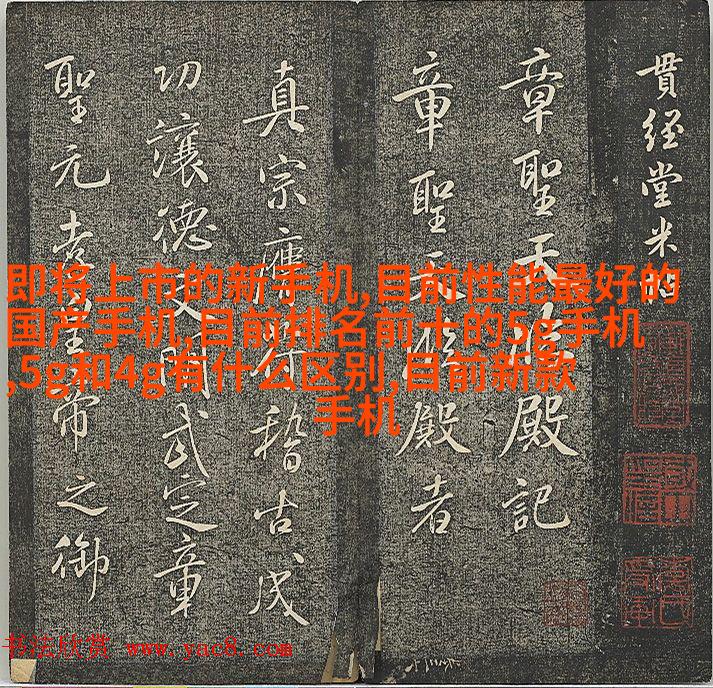 貫經堂米
章聖天臨殿記
章聖天臨殿者
真宗膺符稽古成
功讓德文明武定章
聖元孝皇帝之御
即将上市的新手机,目前性能最好的
国产手机,目前排名前十的5g手机
,5g和4g有什么区别,目前新款
手机
书法欣赏 www.yac8.com